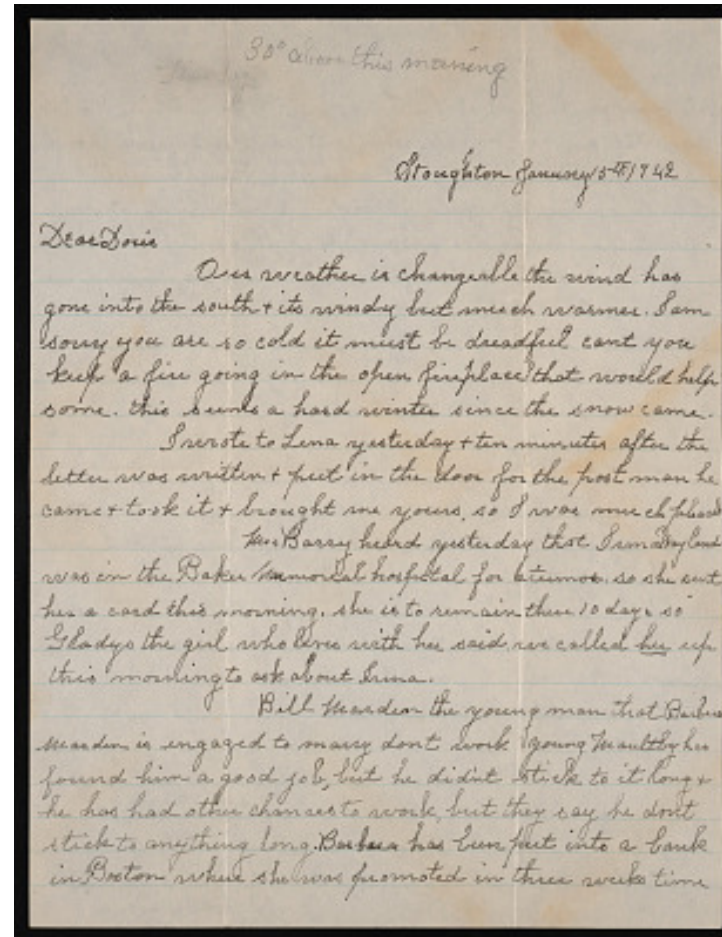 30° above this morning
Stoughton January 15th 1942
Dear Doris
Our weather is changeable the wind has
gone into the south + its windy but much warmer. I am
sorry you are so cold it must be dreadful cant you
keep a fire going in the open fireplace that would help
some. this seems a hard winter since the snow came.
I wrote to Lena yesterday + ten minutes after the
letter was written + put in the door for the post man he
came + took it + brought me yours, so I was much pleased
Mrs Barry heard yesterday that Irma
was in the Baker Memorial hospital for a tumor. so she sent
her a card this morning. she is to remain there 10 days so
Gladys the girl who lives with her said. we called her up
this morning to ask about Irma.
Bill the young man that Barbara
is engaged to marry dont work young has
found him a good job, but he didn't stick to it long +
he has had other chances to work, but they say he dont
stick to anything long. Barbara has been put into a bank
in Boston where she was promoted in three weeks time